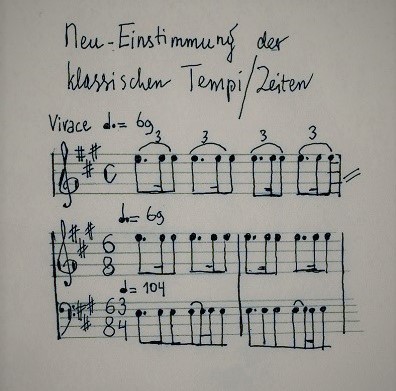 Neu-Einstimmung der
klassischen Tempi/Zeiten
Vivace 𝅗𝅥. = 69
3 3 3 3
C
𝅗𝅥. = 69
6
8
𝅗𝅥 = 104
6 3
8 4